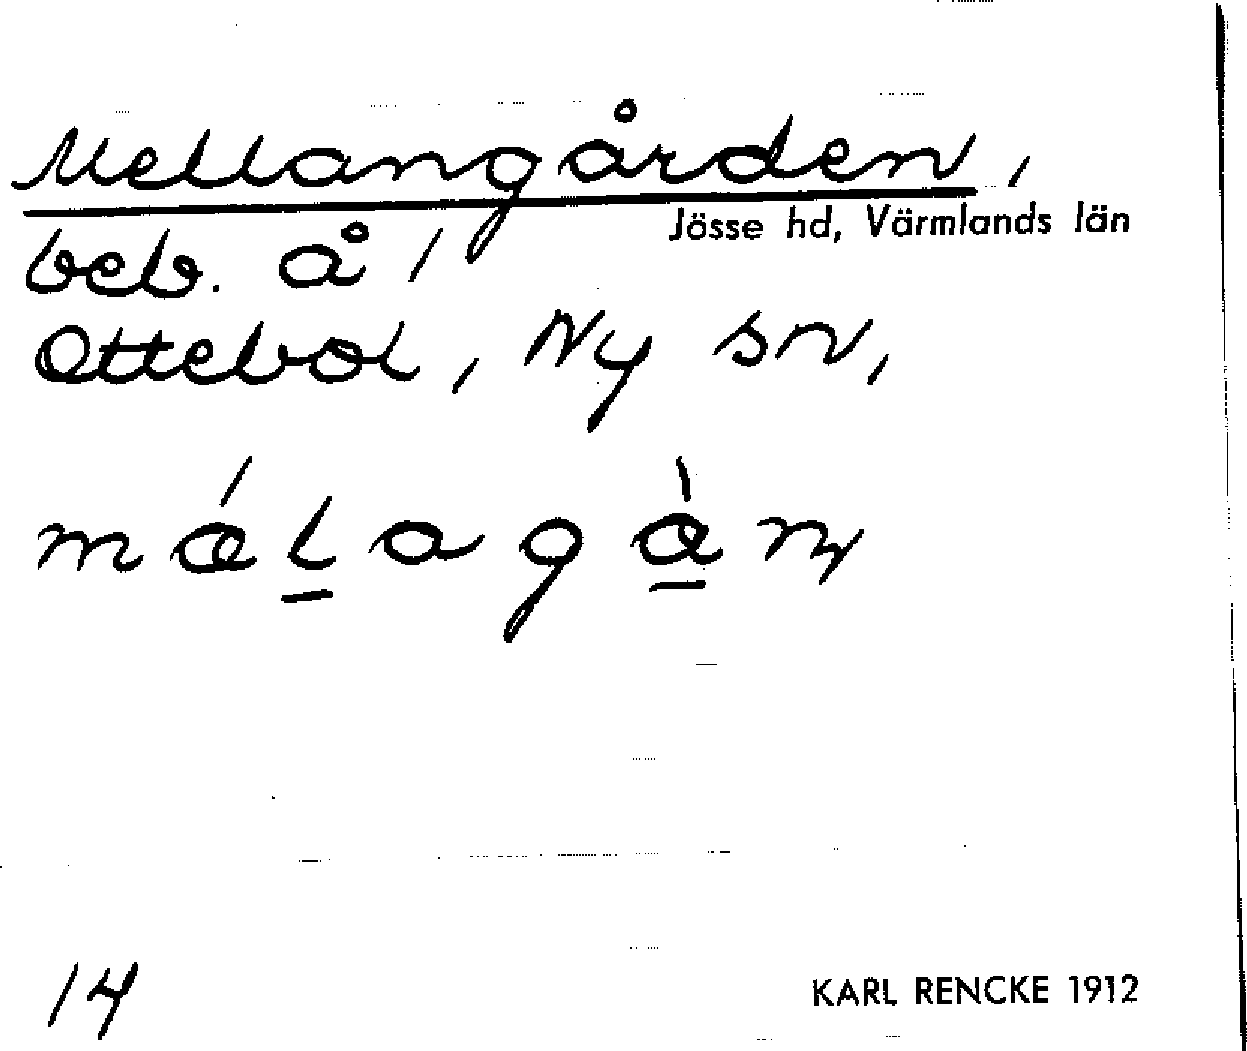 Mellangården,
Jösse hd, Värmlands län
beb. å
Ottebol, Ny sn,
14
KARL RENCKE 1912